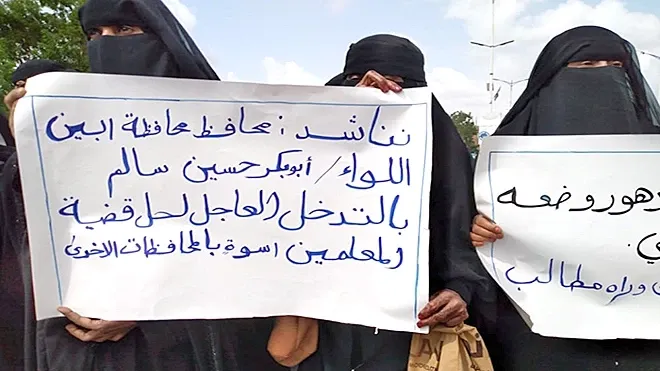 نناشد : محافظ محافظة ابين
اللواء / أبوبكر حسين سالم
بالتدخل العاجل لحل قضية
المعلمين اسوة بالمحافظات الاخرى
دهور وضعه
ي.
وراه مطالب